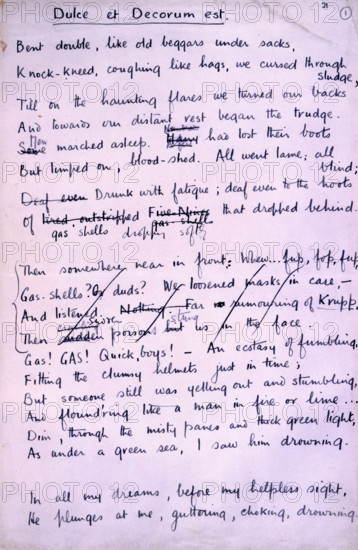 21
1
Dulce et Decorum est.
Bent double, like old beggars under sacks,
Knock-kneed, coughing like hags, we cursed through
sludge,
Till on the haunting flares we turned our backs
And towards our distant rest began the trudge.
Some Men marched asleep. Many had lost their boots
But limped on, blood-shod. All went lame; all
blind;
Deaf even Drunk with fatigue; deaf even to the hoots
Of tired outstripped Five-Nines that dropped behind.
gas shells dropping softly gas-shells
Then somewhere near in front: Whew... fup, fop, fup
Gas-shells? Or duds? We loosened masks in case, —
And listened. Nothing. Far rumouring of Krupp.
stung
Then sudden poisons us in the face.
Gas! GAS! Quick, boys! — An ecstasy of fumbling,
Fitting the clumsy helmets just in time;
But someone still was yelling out and stumbling,
And flound'ring like a man in fire or lime...
Dim, through the misty panes and thick green light,
As under a green sea, I saw him drowning.
In all my dreams, before my helpless sight,
He plunges at me, guttering, choking, drowning.
PHOTO12